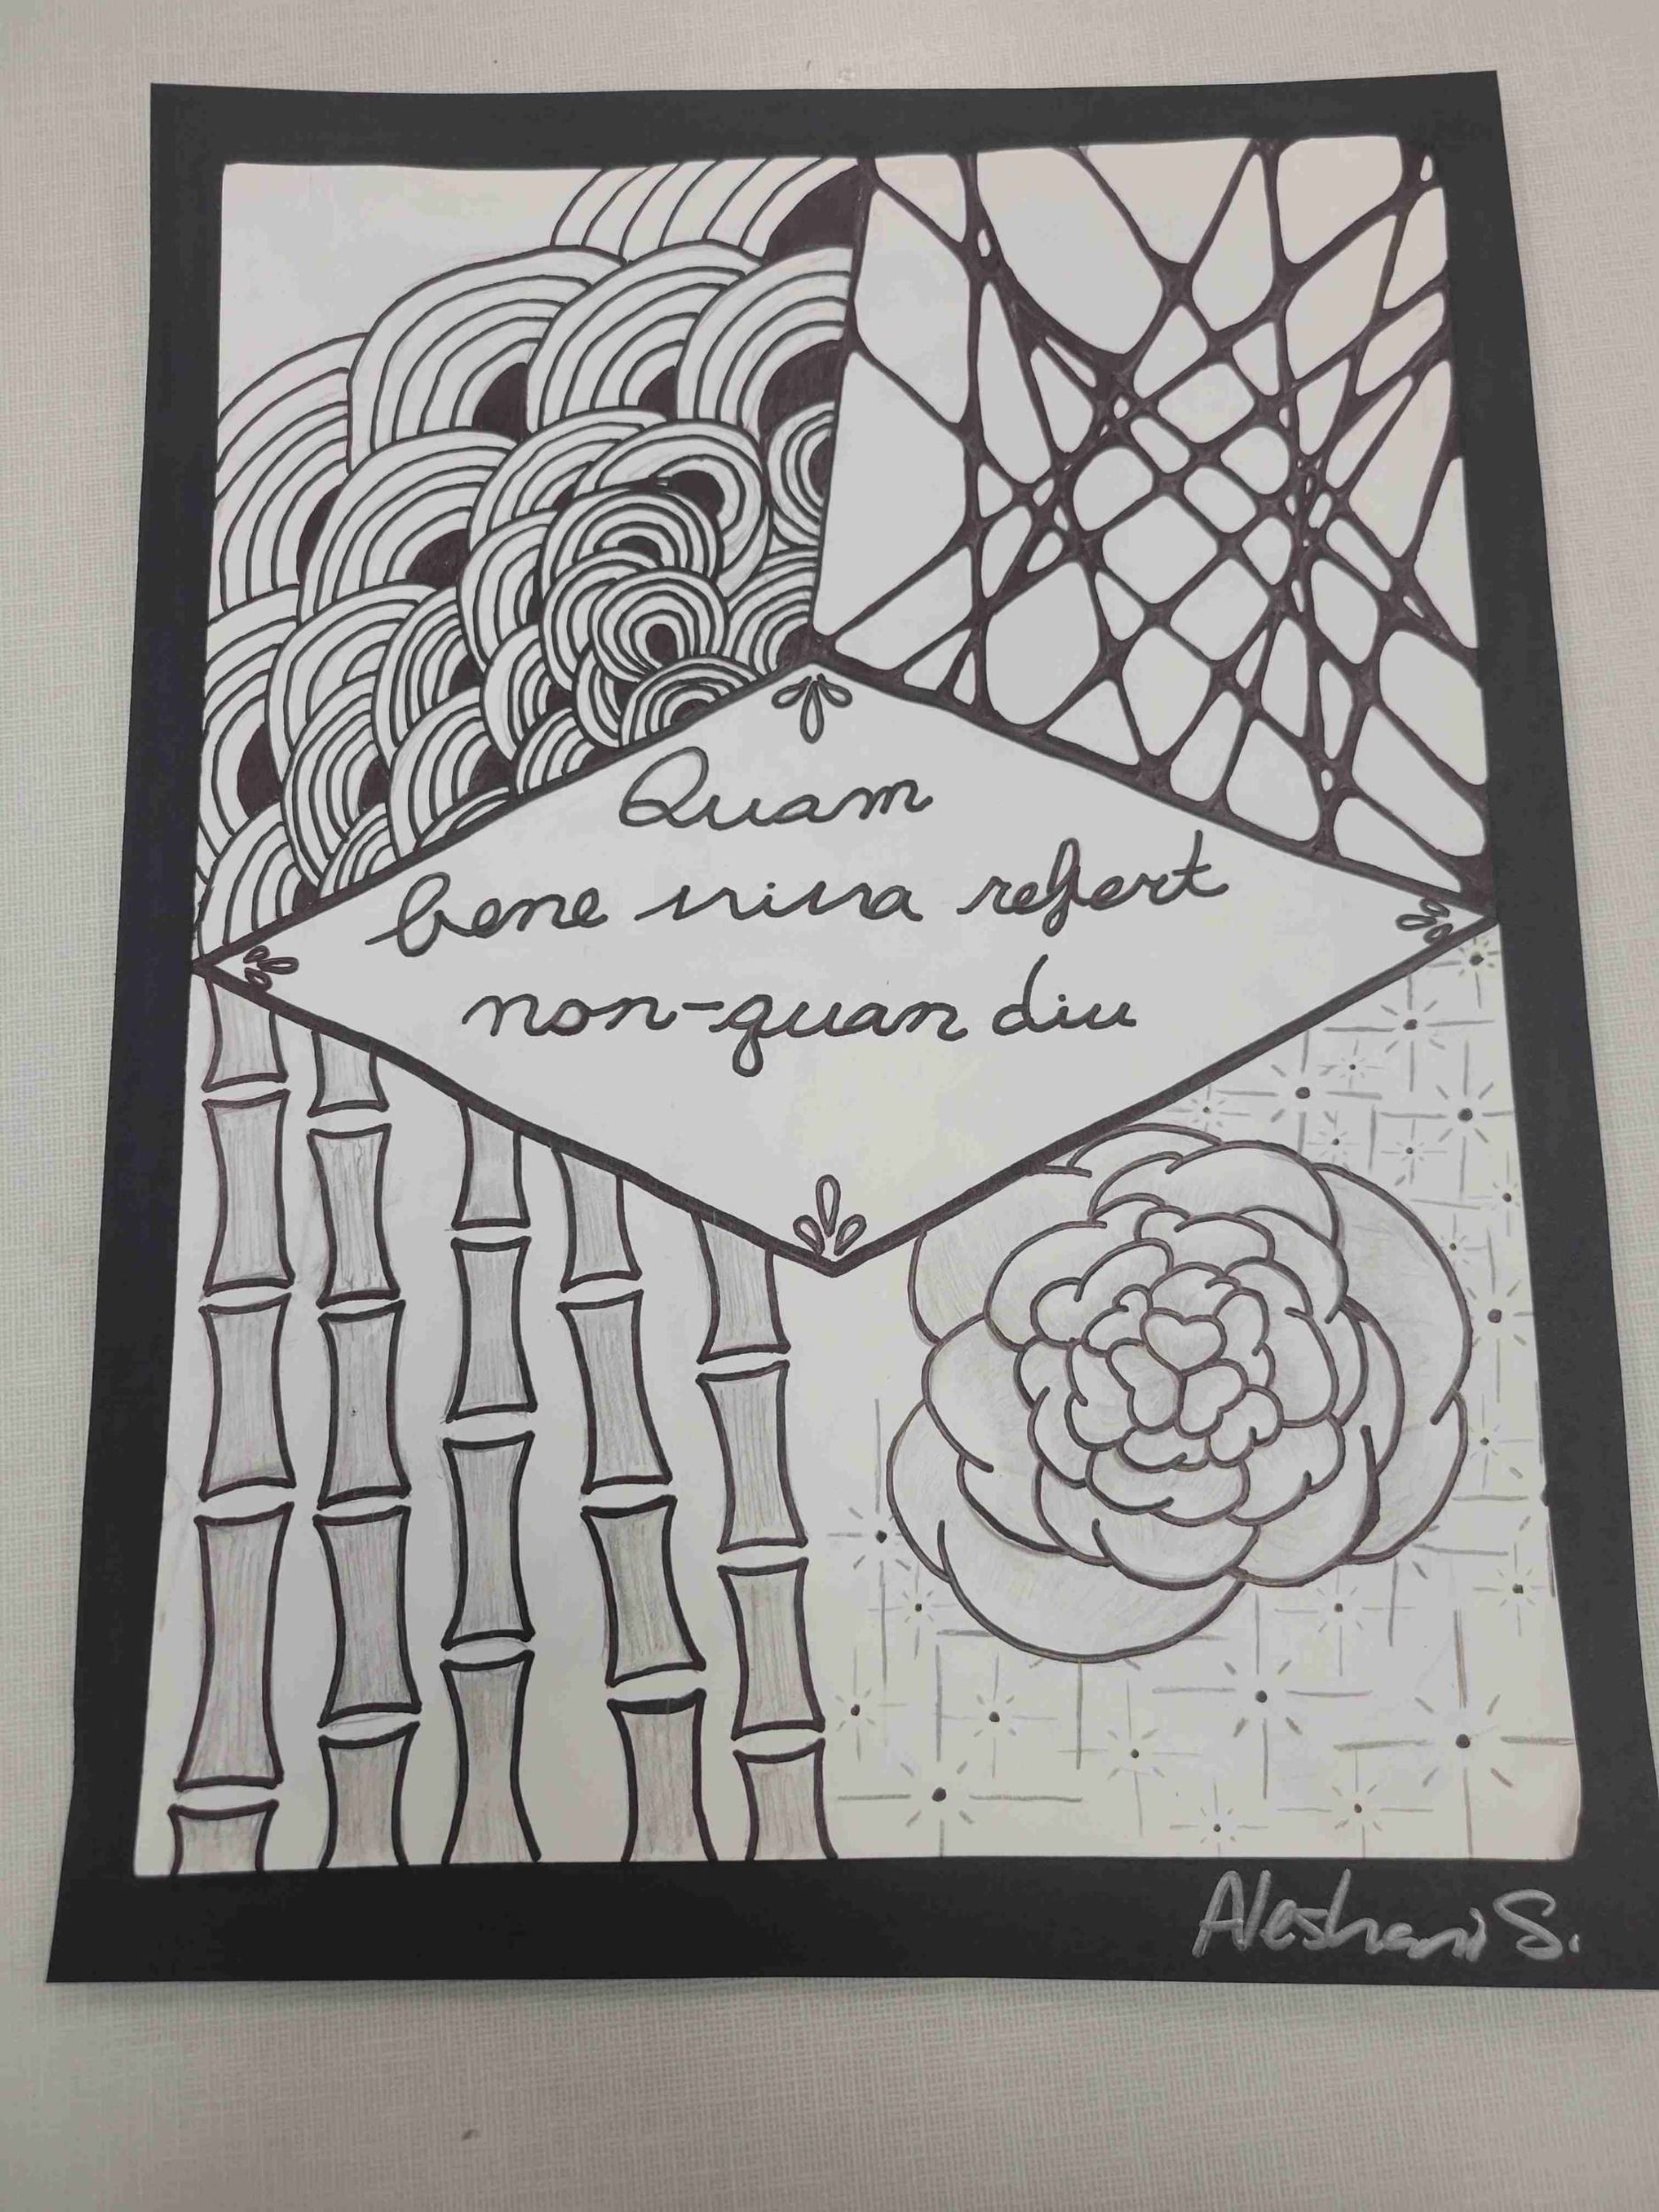 Quam
bene viva refert
non-quan diu
Aleshani S.